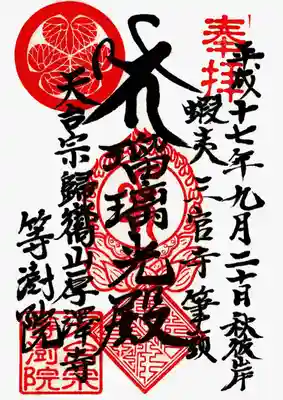 奉拝
平成十七年九月二十日 秋彼岸
蝦夷三官寺筆頭
瑠璃光殿
天台宗歸嚮山厚澤寺
等澍院